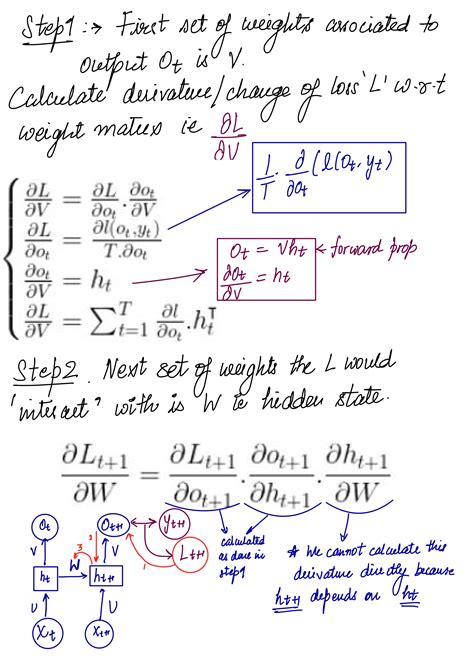 Step1 :→ First set of weights associated to
output Ot is V.
Calculate derivature/change of loss 'L' w.r.t
weight matrix ie ∂L/∂V
1/T . ∂/∂ot (l(ot, yt)
∂L/∂V = ∂L/∂ot . ∂ot/∂V
∂L/∂ot = ∂l(ot,yt)/T.∂ot
∂ot/∂V = ht
∂L/∂V = ∑ᵀt=1 ∂l/∂ot .htᵀ
Ot = Vht ← forward prop
∂ot/∂V = ht
Step2. Next set of weights the L would
'interact' with is W ie hidden state.
∂Lt+1/∂W = ∂Lt+1/∂ot+1 . ∂ot+1/∂ht+1 . ∂ht+1/∂W
calculated
as done in
step1
* We cannot calculate this
derivature directly because
ht+1 depends on ht
Ot
Ot+1
yt+1
Lt+1
1
2
3
V
W
V
ht
ht+1
U
U
Xt
Xt+1